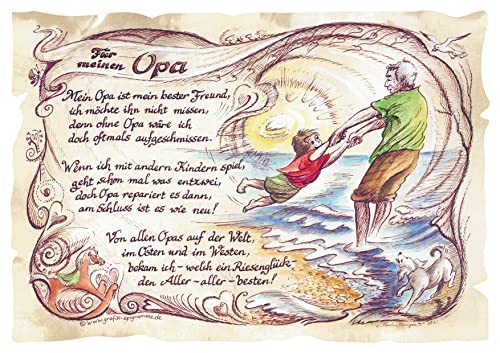 Für
meinen Opa
Mein Opa ist mein bester Freund,
ich möchte ihn nicht missen,
denn ohne Opa wäre ich
doch oftmals aufgeschmissen.
Wenn ich mit andern Kindern spiel,
geht schon mal was entzwei,
doch Opa repariert es dann,
am Schluss ist es wie neu!
Von allen Opas auf der Welt,
im Osten und im Westen,
bekam ich - welch ein Riesenglück -
den Aller-aller-besten!
©www.grafik-epigramme.de